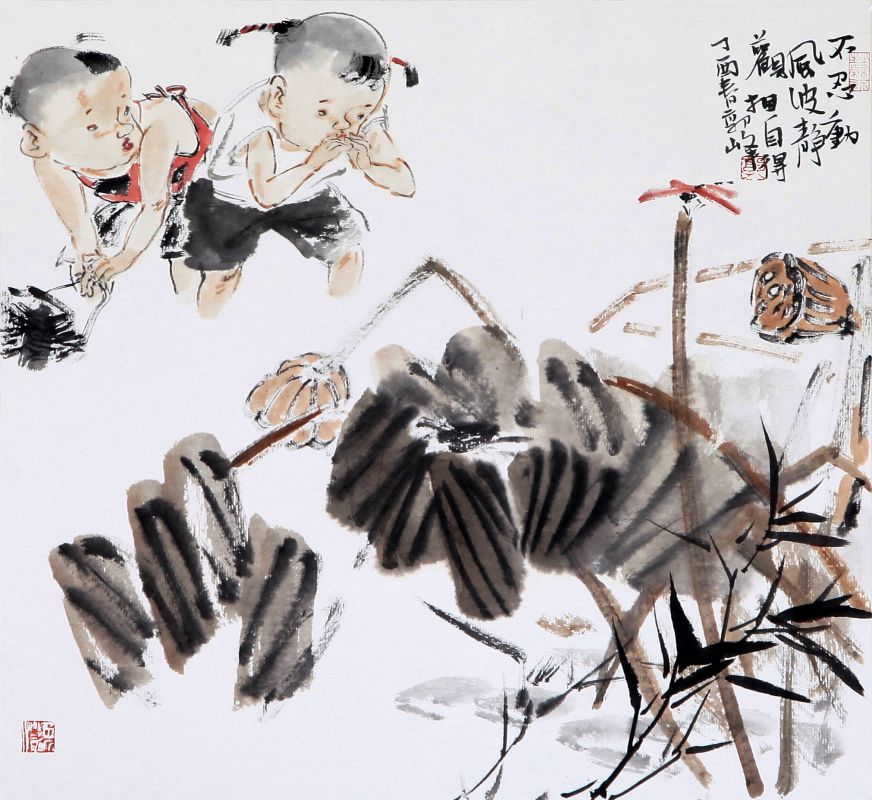 不忍動
風波靜
觀自得
丁酉春山